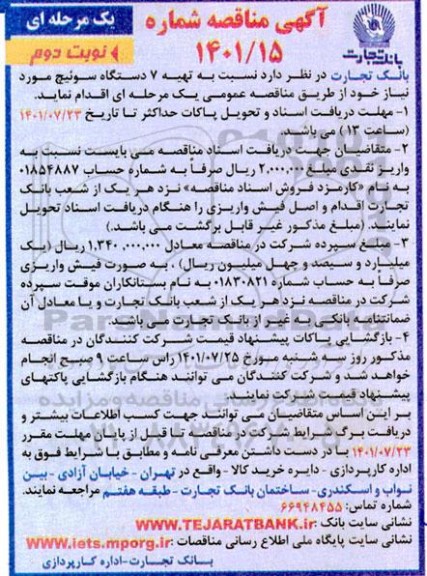 آگهی مناقصه شماره
۱۴۰۱/۱۵
یک مرحله ای
نوبت دوم
بانک تجارت
بانک تجارت در نظر دارد نسبت به تهیه ۷ دستگاه سوئیچ مورد
نیاز خود از طریق مناقصه عمومی یک مرحله ای اقدام نماید.
۱- مهلت دریافت اسناد و تحویل پاکات حداکثر تا تاریخ ۱۴۰۱/۰۷/۲۳
(ساعت ۱۳) می باشد.
۲- متقاضیان جهت دریافت اسناد مناقصه می بایست نسبت به
واریز نقدی مبلغ ۲,۰۰۰,۰۰۰ ریال صرفاً به شماره حساب ۰۱۸۵۴۸۸۷
به نام «کارمزد فروش اسناد مناقصه» نزد هر یک از شعب بانک
تجارت اقدام و اصل فیش واریزی را هنگام دریافت اسناد تحویل
نمایند. (مبلغ مذکور غیر قابل برگشت می باشد.)
۳- مبلغ سپرده شرکت در مناقصه معادل ۱,۳۴۰,۰۰۰,۰۰۰ ریال (یک
میلیارد و سیصد و چهل میلیون ریال) ، به صورت فیش واریزی
صرفاً به حساب شماره ۰۱۸۳۰۸۲۱ به نام بستانکاران موقت سپرده
شرکت در مناقصه نزد هر یک از شعب بانک تجارت و یا معادل آن
ضمانتنامه بانکی به غیر از بانک تجارت می باشد.
۴- بازگشایی پاکات پیشنهاد قیمت شرکت کنندگان در مناقصه
مذکور روز سه شنبه مورخ ۱۴۰۱/۰۷/۲۵ راس ساعت ۹ صبح انجام
خواهد شد و شرکت کنندگان می توانند هنگام بازگشایی پاکتهای
پیشنهاد قیمت شرکت نمایند.
بر این اساس متقاضیان می توانند جهت کسب اطلاعات بیشتر و
دریافت برگ شرایط شرکت در مناقصه تا قبل از پایان مهلت مقرر
۱۴۰۱/۰۷/۲۳ با در دست داشتن معرفی نامه و مطابق با شرایط فوق به
اداره کارپردازی - دایره خرید کالا - واقع در تهران - خیابان آزادی - بین
نواب و اسکندری- ساختمان بانک تجارت - طبقه هفتم مراجعه نمایند.
شماره تماس: ۶۶۹۴۸۴۵۵
نشانی سایت بانک: WWW.TEJARATBANK.ir
نشانی سایت پایگاه ملی اطلاع رسانی مناقصات: www.iets.mporg.ir
بانک تجارت-اداره کارپردازی